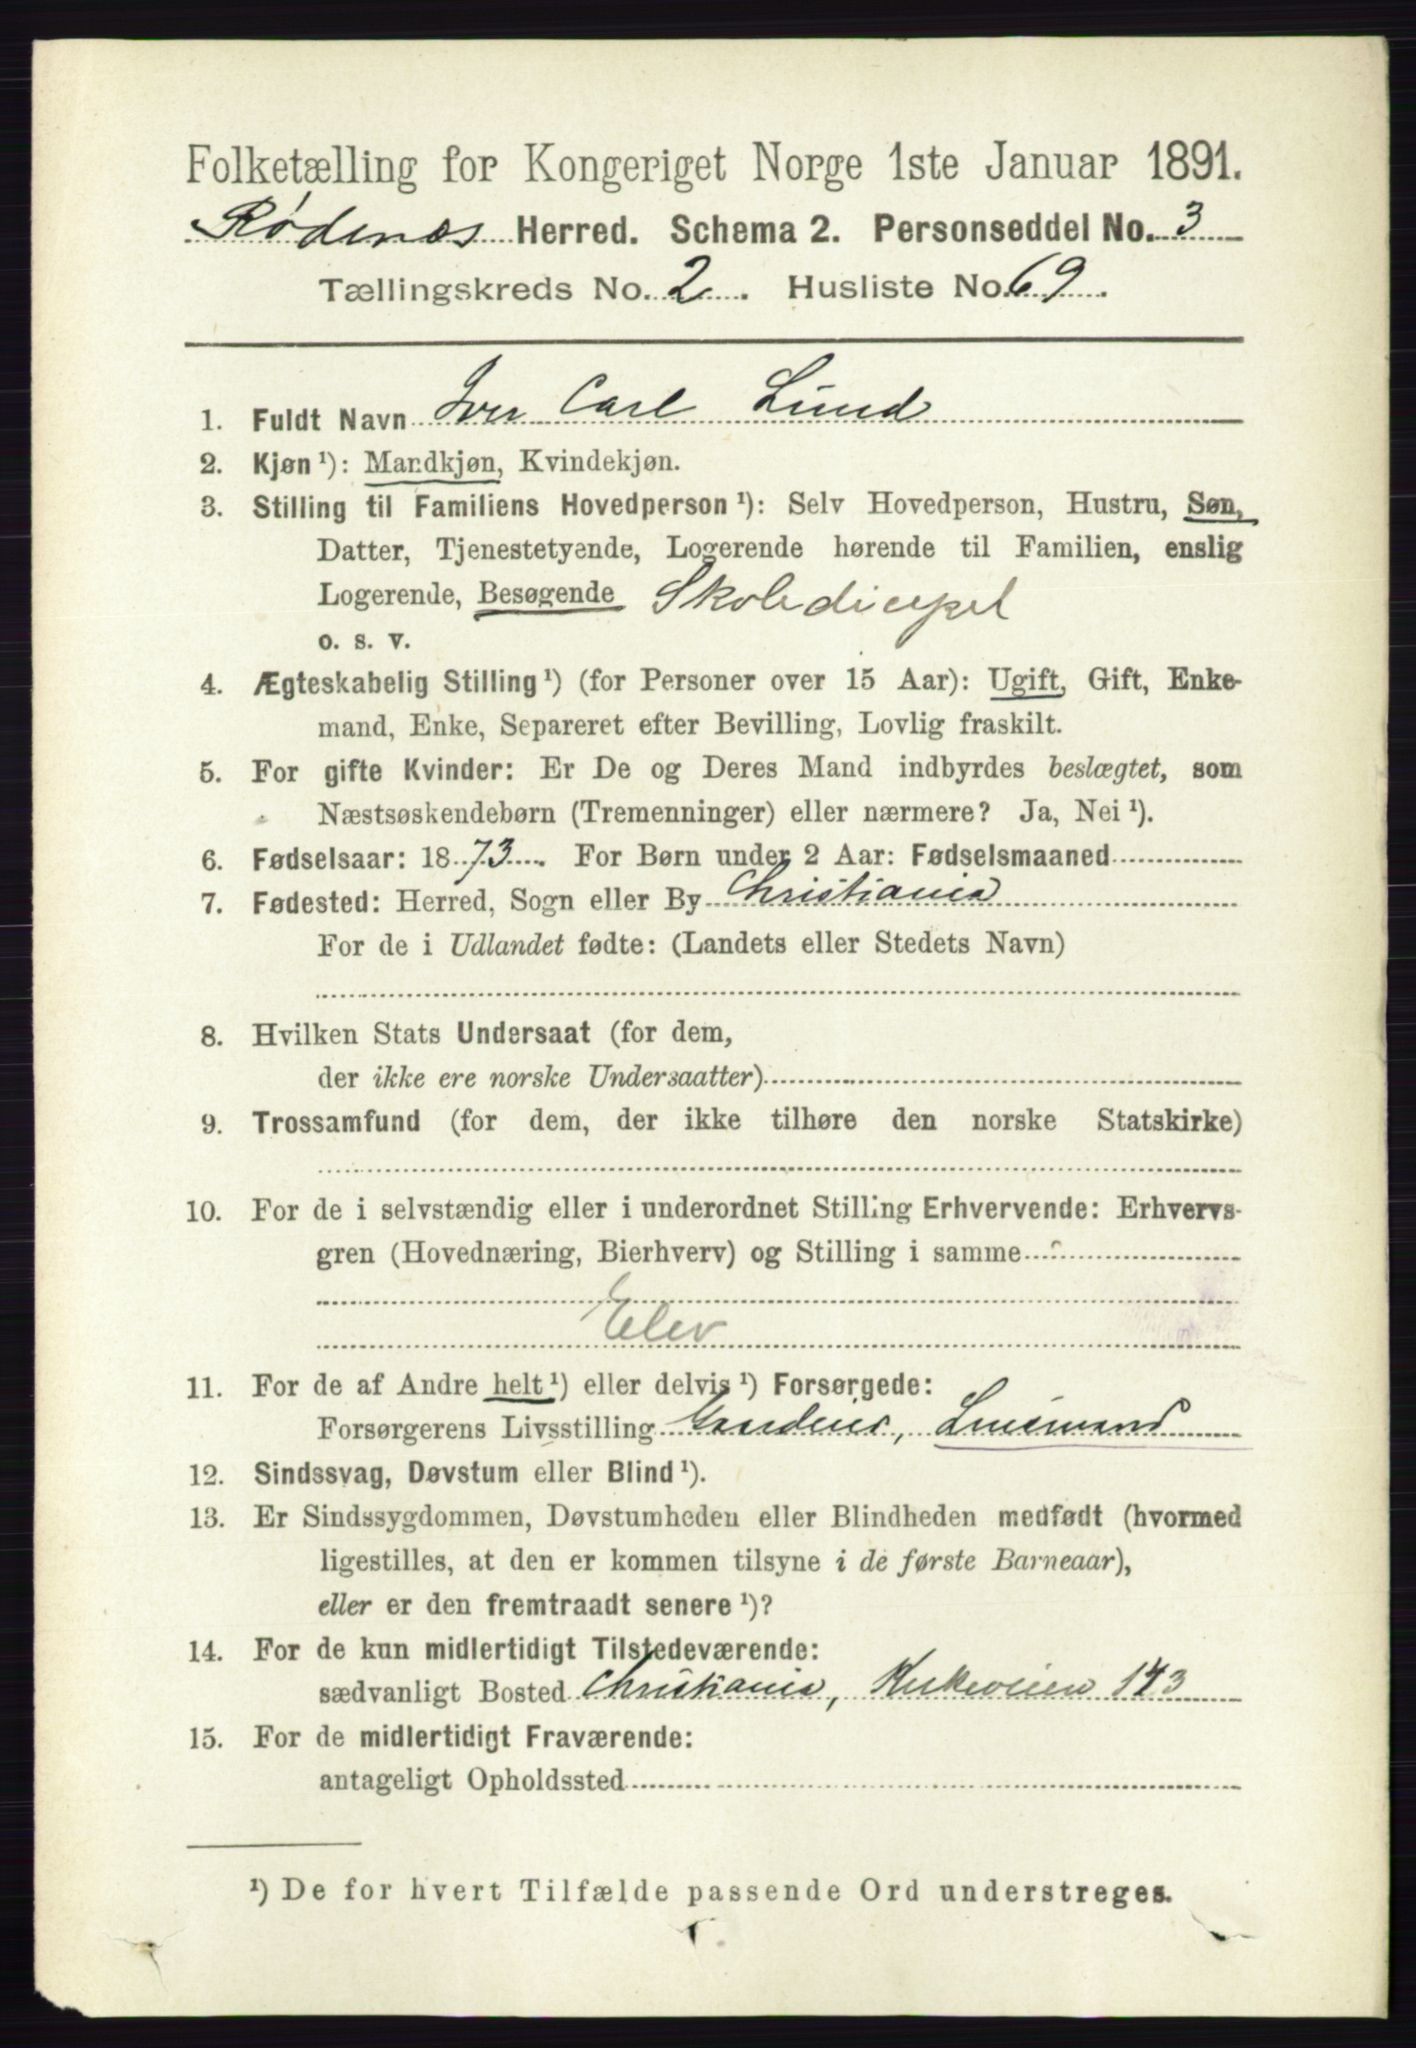 Folketælling for Kongeriget Norge 1ste Januar 1891.
Rødenæs Herred. Schema 2. Personseddel No. 3
Tællingskreds No. 2. Husliste No. 69.
1. Fuldt Navn Iver Carl Lund
2. Kjøn ¹): Mandkjøn, Kvindekjøn.
3. Stilling til Familiens Hovedperson ¹): Selv Hovedperson, Hustru, Søn,
Datter, Tjenestetyende, Logerende hørende til Familien, enslig
Logerende, Besøgende Skoledicepel
o. s. v.
4. Ægteskabelig Stilling ¹) (for Personer over 15 Aar): Ugift, Gift, Enke-
mand, Enke, Separeret efter Bevilling, Lovlig fraskilt.
5. For gifte Kvinder: Er De og Deres Mand indbyrdes beslægtet, som
Næstsøskendebørn (Tremenninger) eller nærmere? Ja, Nei ¹).
6. Fødselsaar: 1873. For Børn under 2 Aar: Fødselsmaaned
7. Fødested: Herred, Sogn eller By Christiania
For de i Udlandet fødte: (Landets eller Stedets Navn)
8. Hvilken Stats Undersaat (for dem,
der ikke ere norske Undersaatter)
9. Trossamfund (for dem, der ikke tilhøre den norske Statskirke)
10. For de i selvstændig eller i underordnet Stilling Erhvervende: Erhvervs-
gren (Hovednæring, Bierhverv) og Stilling i samme
Elev
11. For de af Andre helt ¹) eller delvis ¹) Forsørgede:
Forsørgerens Livsstilling
12. Sindssvag, Døvstum eller Blind ¹).
13. Er Sindssygdommen, Døvstumheden eller Blindheden medfødt (hvormed
ligestilles, at den er kommen tilsyne i de første Barneaar),
eller er den fremtraadt senere ¹)?
14. For de kun midlertidigt Tilstedeværende:
sædvanligt Bosted Christiania, Kirkeveien 143
15. For de midlertidigt Fraværende:
antageligt Opholdssted
¹) De for hvert Tilfælde passende Ord understreges.